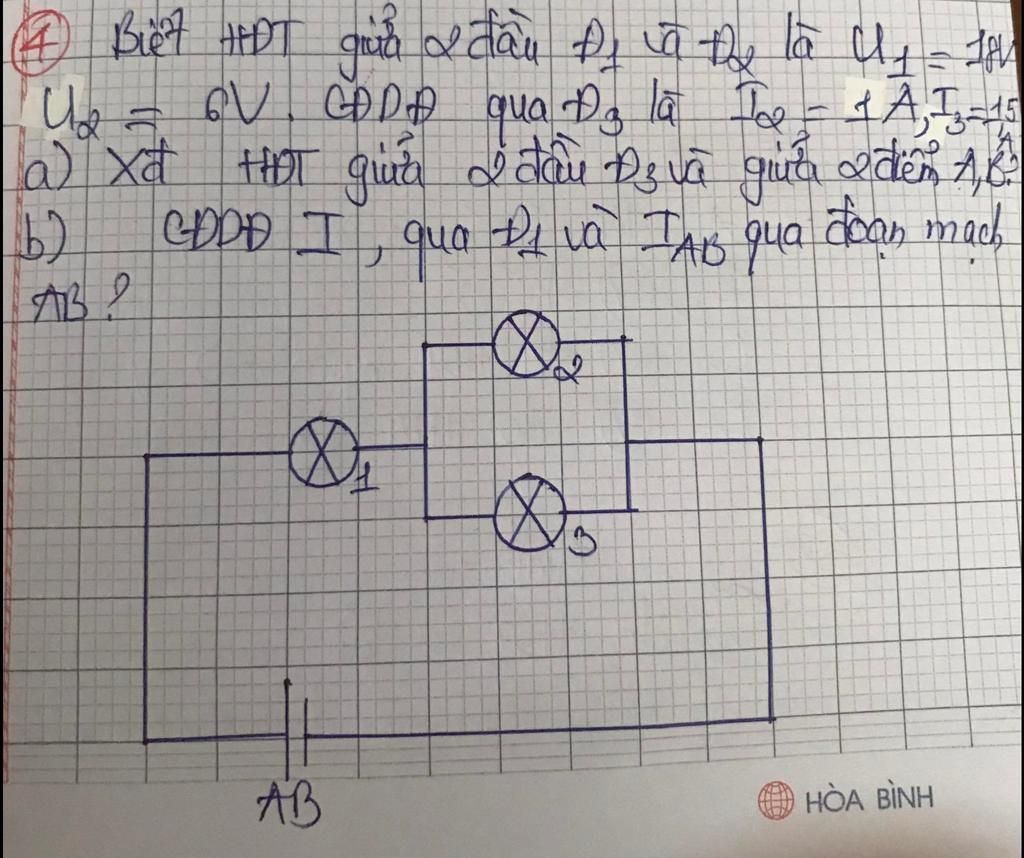 ④ Biết HĐT giữa 2 đầu Đ1 và Đ2 là U1 = 18V
U2 = 6V. CĐDĐ qua Đ3 là I2 = 1A, I3 = 15A
a) Xđ HĐT giữa 2 đầu Đ3 và giữa 2 điểm A, B?
b) CĐDĐ I, qua Đ1 và IAB qua đoạn mạch
AB?
2
1
3
AB
HÒA BÌNH